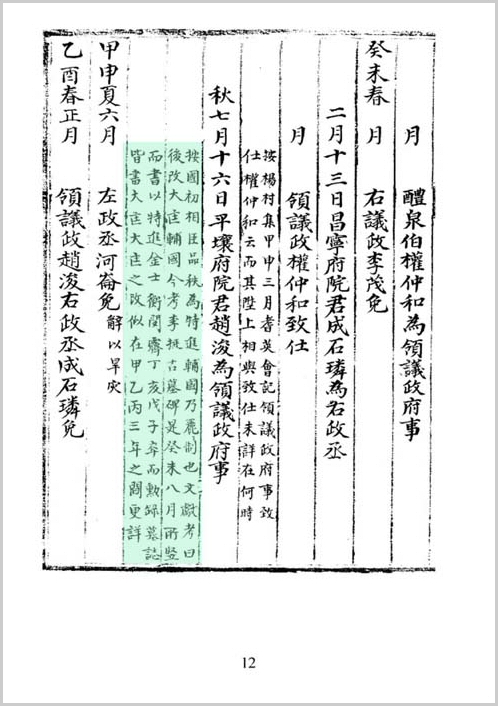 月 醴泉伯權仲和為領議政府事
癸未春 月 右議政李茂免
二月十三日昌寧府院君成石璘為右政丞
月 領議政權仲和致仕
按楊村集甲申三月耆英會記領議政府事致
仕權仲和云而其陞上相與致仕未詳在何時
秋七月十六日平壤府院君趙浚為領議政府事
按國初相臣品秩為特進輔國乃麗制也文獻考曰
後改大匡輔國今考李挑吉墓碑是癸未八月所竪
而書以特進金士衡閔霽丁亥戊子卒而勳錄墓誌
皆書大匡大匡之改似在甲乙丙三年之間更詳
甲申夏六月 左政丞河崙免 解以旱灾
乙酉春正月 領議政趙浚右政丞成石璘免
12